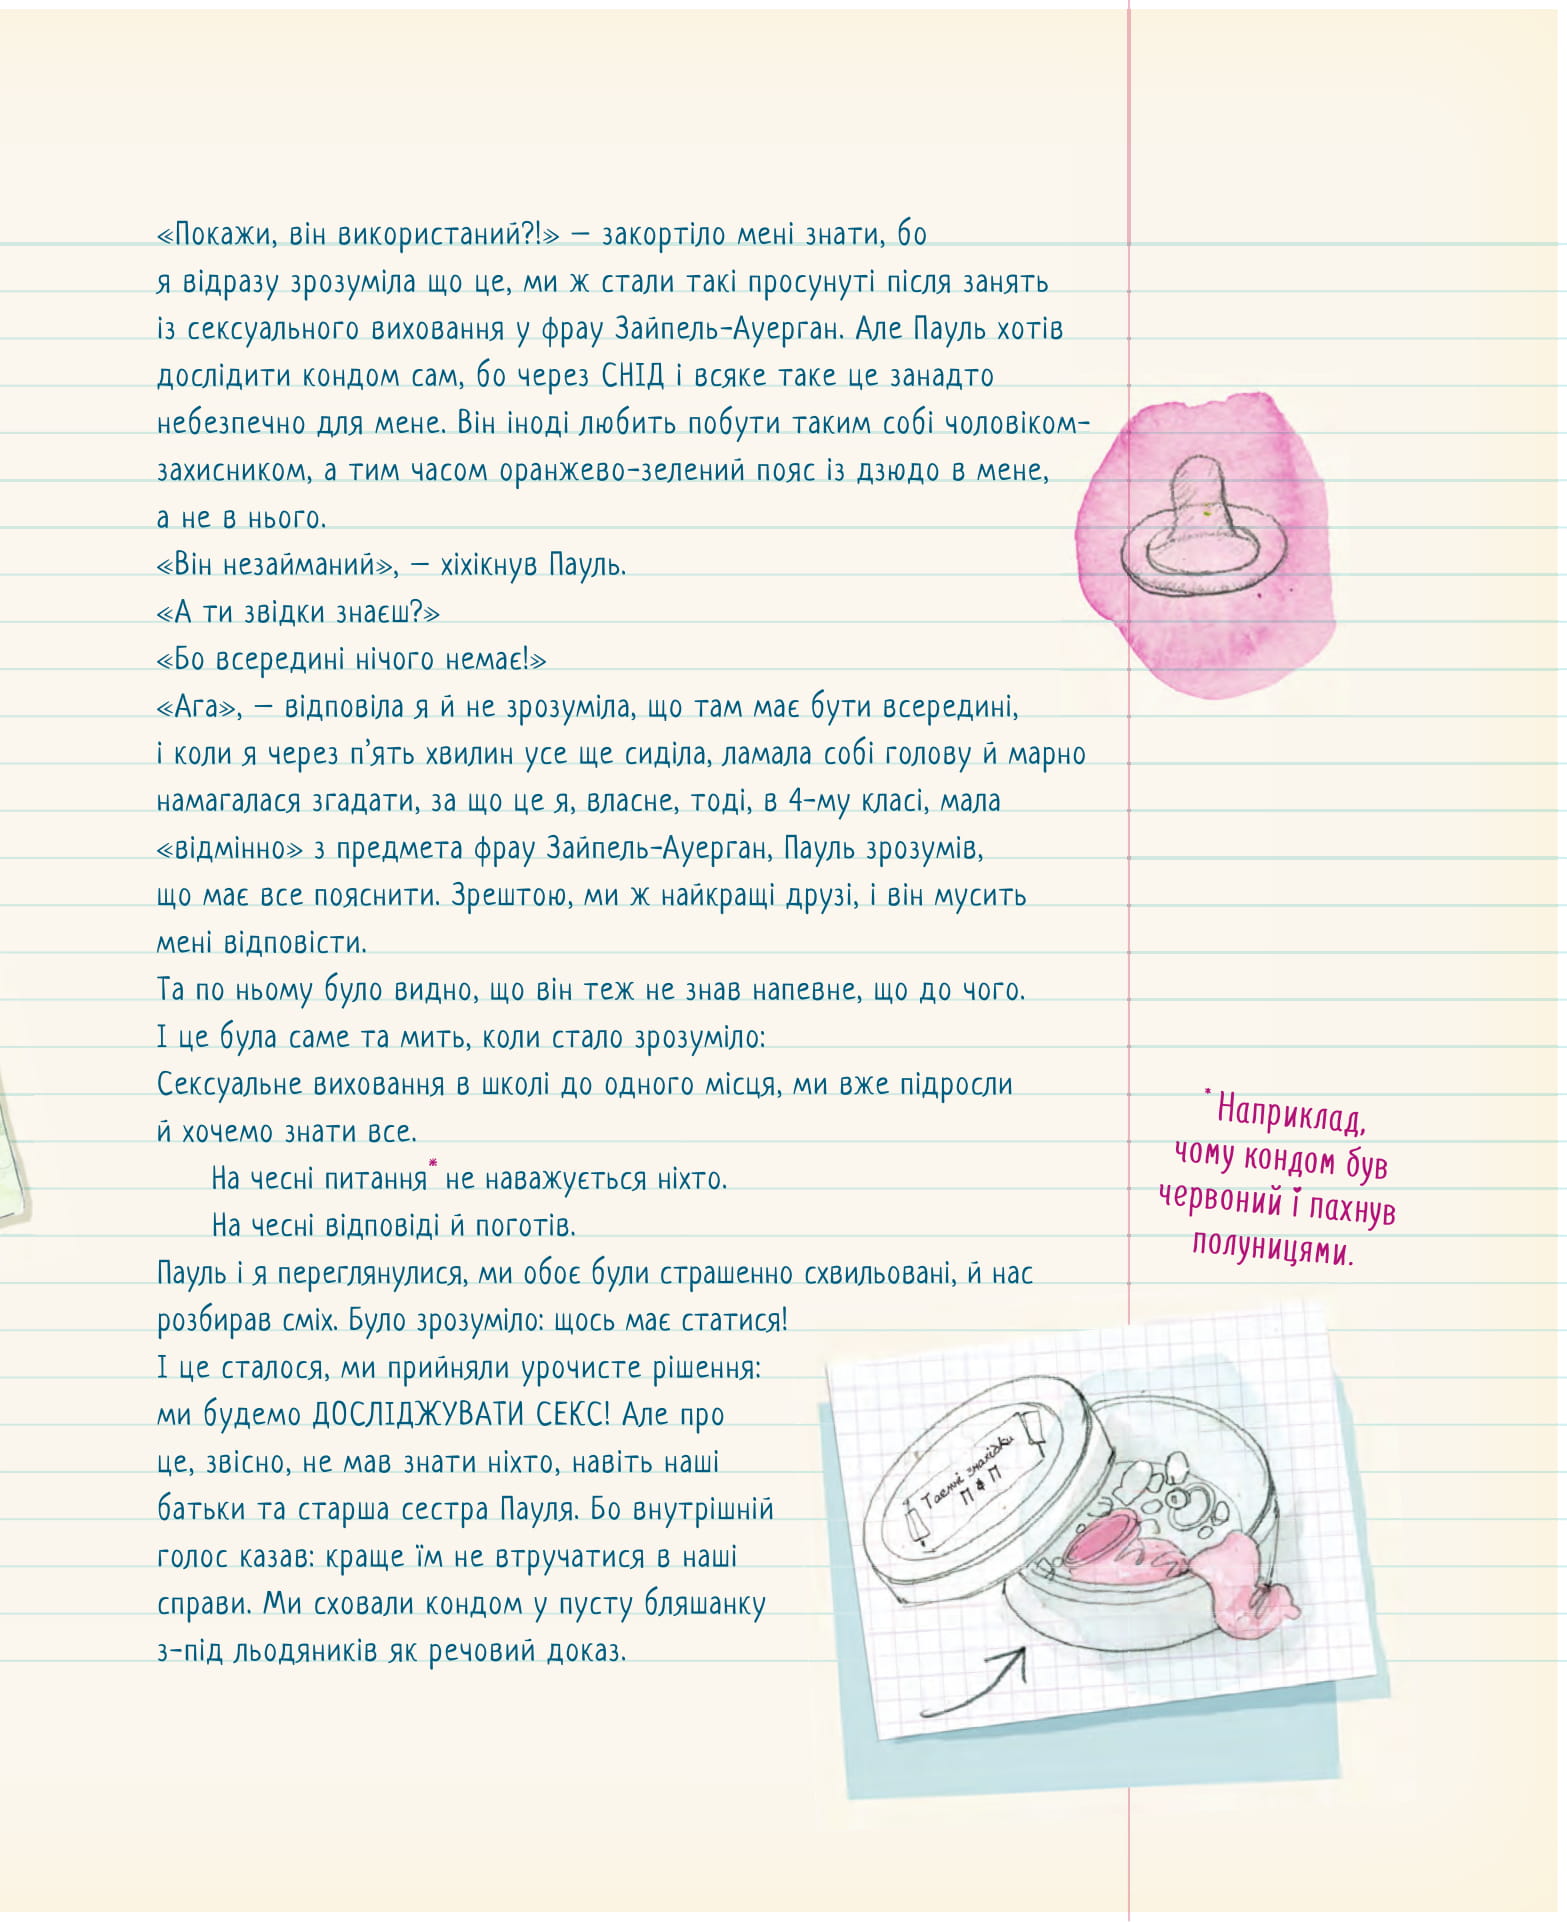 «Покажи, він використаний?!» – закортіло мені знати, бо
я відразу зрозуміла що це, ми ж стали такі просунуті після занять
із сексуального виховання у фрау Зайпель-Ауерган. Але Пауль хотів
дослідити кондом сам, бо через СНІД і всяке таке це занадто
небезпечно для мене. Він іноді любить побути таким собі чоловіком-
захисником, а тим часом оранжево-зелений пояс із дзюдо в мене,
а не в нього.
«Він незайманий», – хіхікнув Пауль.
«А ти звідки знаєш?»
«Бо всередині нічого немає!»
«Ага», – відповіла я й не зрозуміла, що там має бути всередині,
і коли я через п’ять хвилин усе ще сиділа, ламала собі голову й марно
намагалася згадати, за що це я, власне, тоді, в 4-му класі, мала
«відмінно» з предмета фрау Зайпель-Ауерган, Пауль зрозумів,
що має все пояснити. Зрештою, ми ж найкращі друзі, і він мусить
мені відповісти.
Та по ньому було видно, що він теж не знав напевне, що до чого.
І це була саме та мить, коли стало зрозуміло:
Сексуальне виховання в школі до одного місця, ми вже підросли
й хочемо знати все.
На чесні питання* не наважується ніхто.
На чесні відповіді й поготів.
Пауль і я переглянулися, ми обоє були страшенно схвильовані, й нас
розбирав сміх. Було зрозуміло: щось має статися!
І це сталося, ми прийняли урочисте рішення:
ми будемо ДОСЛІДЖУВАТИ СЕКС! Але про
це, звісно, не мав знати ніхто, навіть наші
батьки та старша сестра Пауля. Бо внутрішній
голос казав: краще їм не втручатися в наші
справи. Ми сховали кондом у пусту бляшанку
з-під льодяників як речовий доказ.
* Наприклад,
чому кондом був
червоний і пахнув
полуницями.
Таємні знахідки
П & П